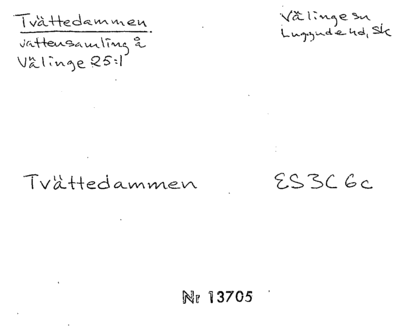 Tvättedammen
vattensamling å
Välinge 25:1
Välinge sn
Luggude hd, Sk
Tvättedammen
ES3C6c
Nr 13705